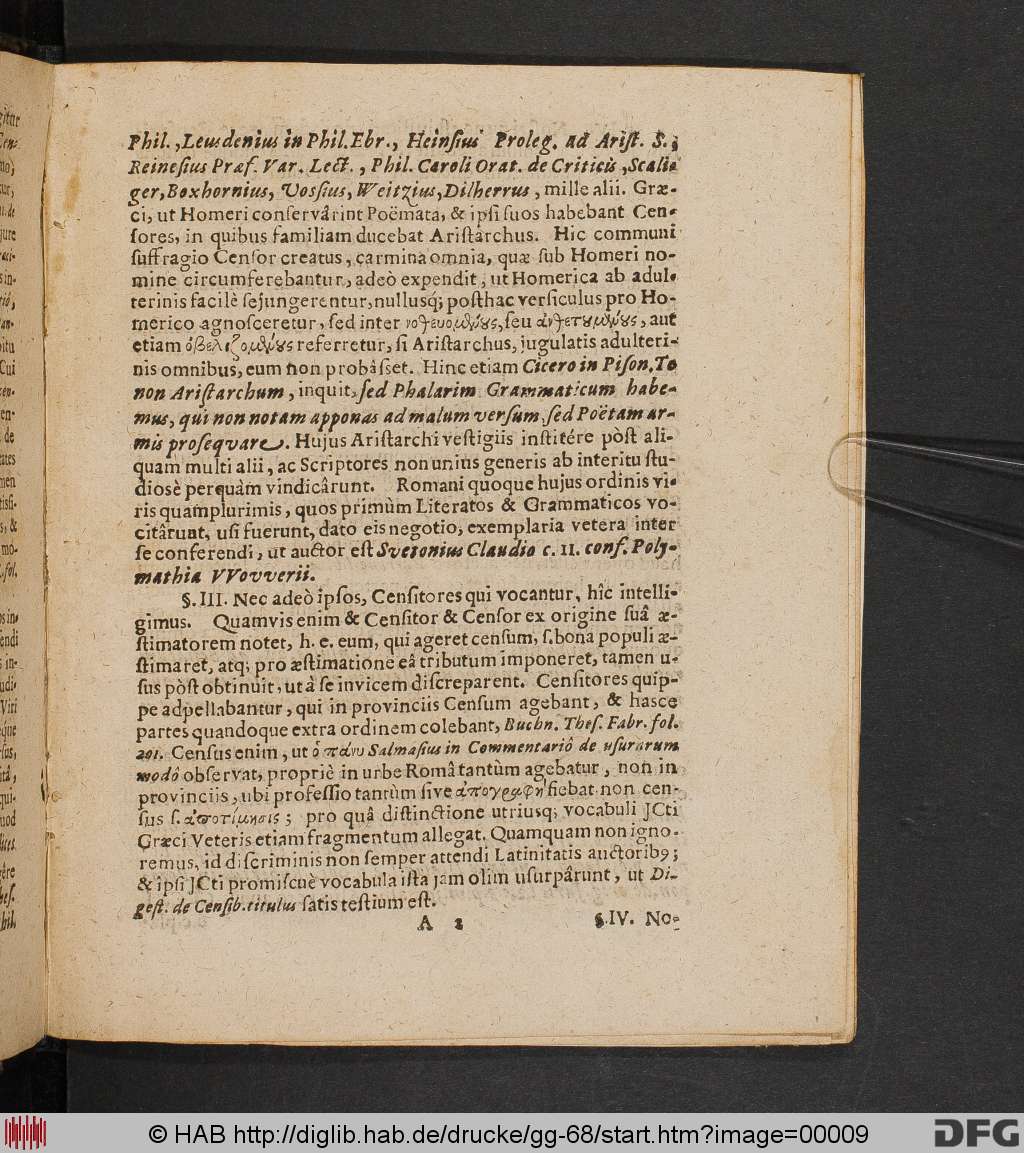 Phil., Leusdenius in Phil. Ebr., Heinſius Proleg. ad Ariſt. S.;
Reineſius Præf. Var. Lect., Phil. Caroli Orat. de Criticis, Scali-
ger, Boxhornius, Voſſius, Weitzius, Dilherrus, mille alii. Græ-
ci, ut Homeri conſervârint Poëmata, & ipſi ſuos habebant Cen-
ſores, in quibus familiam ducebat Ariſtarchus. Hic communi
ſuffragio Cenſor creatus, carmina omnia, quæ ſub Homeri no-
mine circumferebantur, adeò expendit, ut Homerica ab adul-
terinis facilè ſejungerentur, nullusq́; poſthac verſiculus pro Ho-
merico agnoſceretur, ſed inter νοθευομένους, ſeu ἀνθετουμένους, aut
etiam ὀβελιζομένους referretur, ſi Ariſtarchus, jugulatis adulteri-
nis omnibus, eum non probâſſet. Hinc etiam Cicero in Piſon. Te
non Ariſtarchum, inquit, ſed Phalarim Grammaticum habe-
mus, qui non notam apponas ad malum verſum, ſed Poëtam ar-
mis proſequare. Hujus Ariſtarchi veſtigiis inſtitére pòſt ali-
quam multi alii, ac Scriptores non unius generis ab interitu ſtu-
dioſè perquàm vindicârunt. Romani quoque hujus ordinis vi-
ris quamplurimis, quos primùm Literatos & Grammaticos vo-
citârunt, uſi fuerunt, dato eis negotio, exemplaria vetera inter
ſe conferendi, ut auctor eſt Svetonius Claudio c. 11. conf. Poly-
mathia VVovverii.
§. III. Nec adeò ipſos, Cenſitores qui vocantur, hîc intelli-
gimus. Quamvis enim & Cenſitor & Cenſor ex origine ſuâ æ-
ſtimatorem notet, h. e. eum, qui ageret cenſum, ſ. bona populi æ-
ſtimaret, atq; pro æſtimatione eâ tributum imponeret, tamen u-
ſus pòſt obtinuit, ut à ſe invicem diſcreparent. Cenſitores quip-
pe adpellabantur, qui in provinciis Cenſum agebant, & hasce
partes quandoque extra ordinem colebant, Buchn. Theſ. Fabr. fol.
201. Cenſus enim, ut ὁ πάνυ Salmaſius in Commentariô de uſurarum
modô obſervat, propriè in urbe Româ tantùm agebatur, non in
provinciis, ubi profeſſio tantùm ſive ἀπογραφὴ fiebat non cen-
ſus ſ. ἀποτίμησις; pro quâ diſtinctione utriusq; vocabuli JCti
Græci Veteris etiam fragmentum allegat. Quamquam non igno-
remus, id diſcriminis non ſemper attendi Latinitatis auctoribꝰ;
& ipſi JCti promiſcuè vocabula iſta jam olim uſurpârunt, ut Di-
geſt. de Cenſib. titulus ſatis teſtium eſt.
A 2 §. IV. No-
© HAB http://diglib.hab.de/drucke/gg-68/start.htm?image=00009
DFG